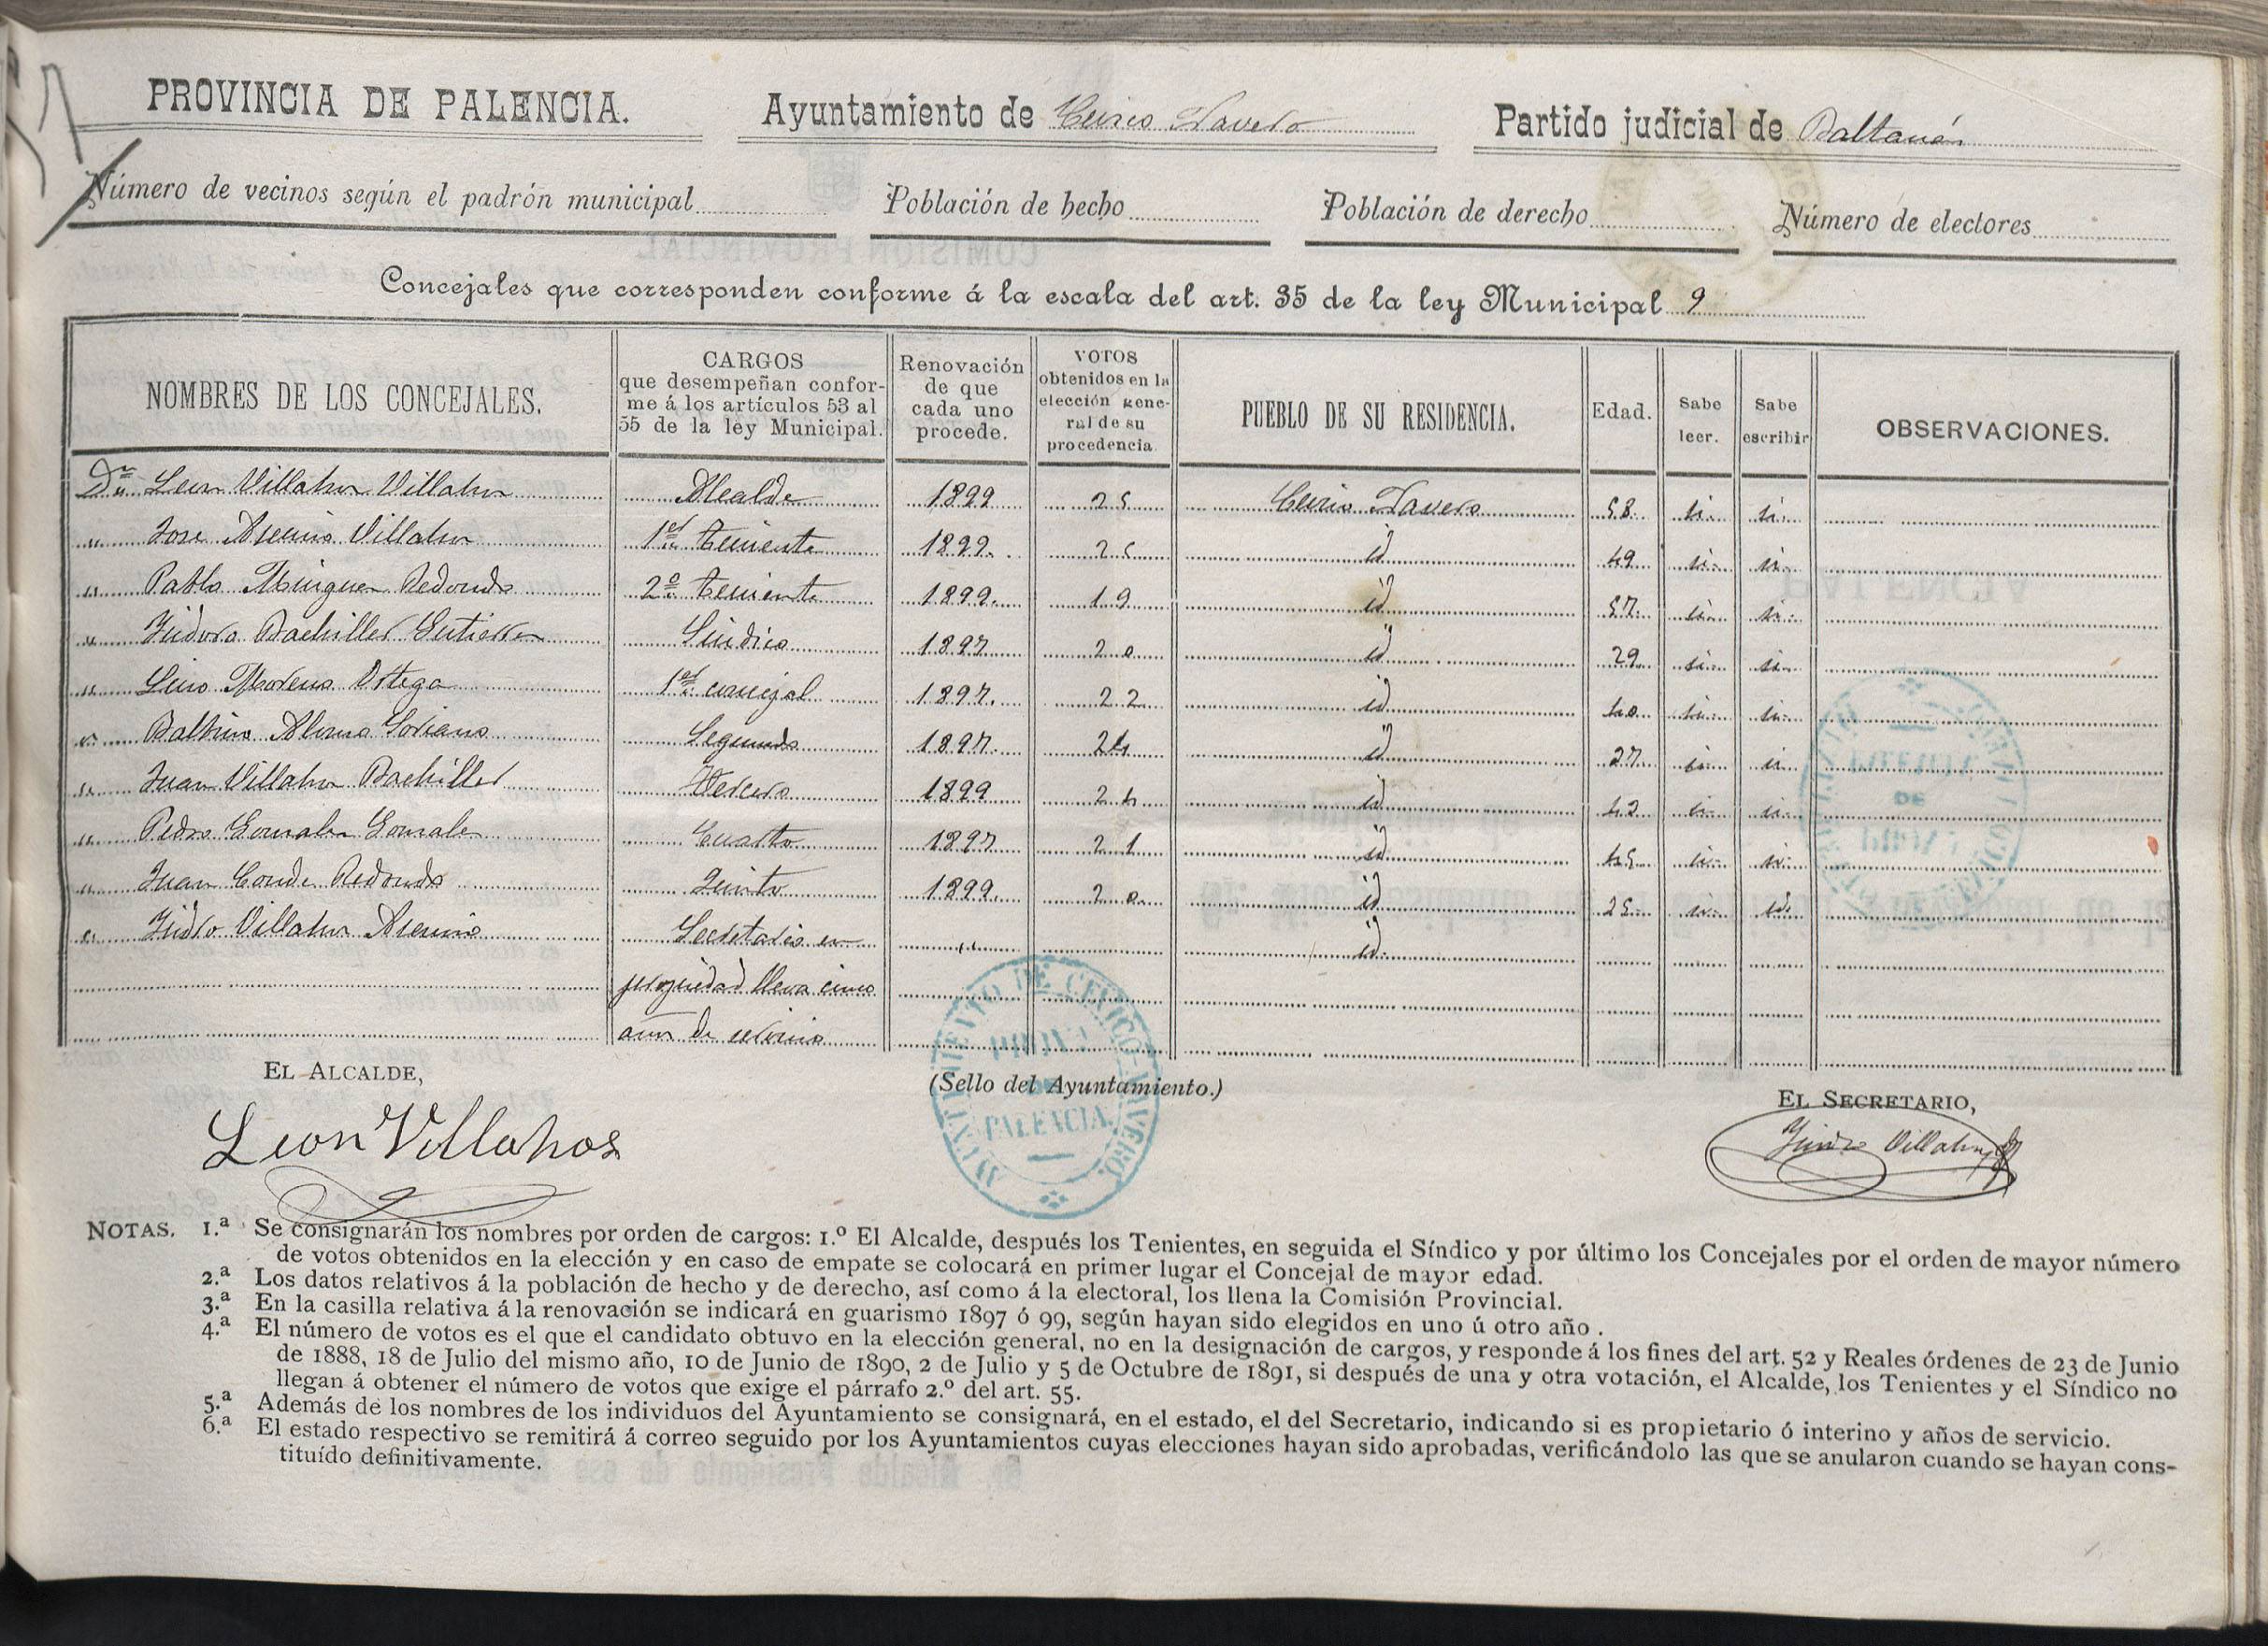 PROVINCIA DE PALENCIA. Ayuntamiento de Cevico Navero Partido judicial de Baltanás
Número de vecinos según el padrón municipal Población de hecho Población de derecho Número de electores
Concejales que corresponden conforme á la escala del art. 35 de la ley Municipal 9
NOMBRES DE LOS CONCEJALES. CARGOS que desempeñan confor- me á los artículos 53 al 55 de la ley Municipal. Renovación de que cada uno procede. VOTOS obtenidos en la elección gene- ral de su procedencia PUEBLO DE SU RESIDENCIA. Edad. Sabe leer. Sabe escribir OBSERVACIONES.
Dn Leon Villahoz Villahoz Alcalde 1899 25 Cevico Navero 58 si si
" Jose Asenio Villahoz 1er Teniente 1899. 25 id 49 si si
" Pablo Minguez Redondo 2º Teniente 1899. 19 id 57 si si
" Ysidoro Bachiller Gutierrez Sindico 1897 20 id 29 si si
" Lino Moreno Ortega 1er concejal 1897. 22 id 40 si si
" Balbino Alonso Soriano Segundo 1897. 24 id 27 si si
" Juan Villahoz Bachiller Tercero 1899 24 id 42 si si
" Pedro Gonzalez Gonzalez Cuarto 1897 21 id 45 si si
" Juan Conde Redondo Quinto 1899. 20. id 25 si id.
" Ysidro Villahoz Asenio Secretario en " id.
propiedad lleva cinco
años de servicio
EL ALCALDE, (Sello del Ayuntamiento.) EL SECRETARIO,
Leon Villahoz Ysidro Villahoz
AYUNTAMIENTO DE CEVICO-NAVERO.
PROVª
DE
PALENCIA.
NOTAS. 1.ª Se consignarán los nombres por orden de cargos: 1.º El Alcalde, después los Tenientes, en seguida el Síndico y por último los Concejales por el orden de mayor número
de votos obtenidos en la elección y en caso de empate se colocará en primer lugar el Concejal de mayor edad.
2.ª Los datos relativos á la población de hecho y de derecho, así como á la electoral, los llena la Comisión Provincial.
3.ª En la casilla relativa á la renovación se indicará en guarismo 1897 ó 99, según hayan sido elegidos en uno ú otro año.
4.ª El número de votos es el que el candidato obtuvo en la elección general, no en la designación de cargos, y responde á los fines del art. 52 y Reales órdenes de 23 de Junio
de 1888, 18 de Julio del mismo año, 10 de Junio de 1890, 2 de Julio y 5 de Octubre de 1891, si después de una y otra votación, el Alcalde, los Tenientes y el Síndico no
llegan á obtener el número de votos que exige el párrafo 2.º del art. 55.
5.ª Además de los nombres de los individuos del Ayuntamiento se consignará, en el estado, el del Secretario, indicando si es propietario ó interino y años de servicio.
6.ª El estado respectivo se remitirá á correo seguido por los Ayuntamientos cuyas elecciones hayan sido aprobadas, verificándolo las que se anularon cuando se hayan cons-
tituído definitivamente.